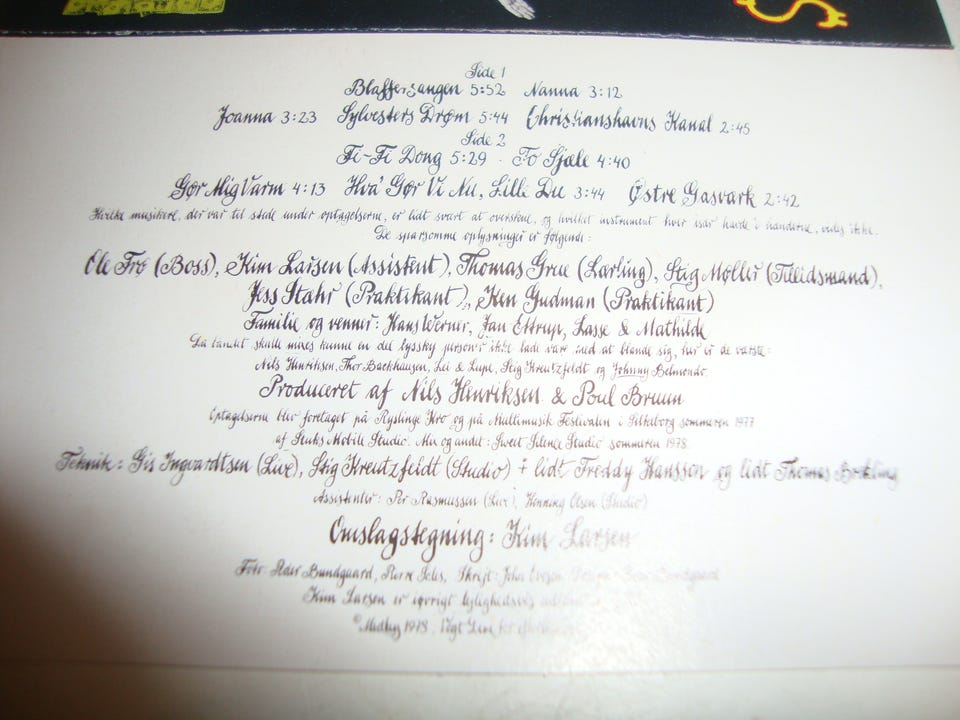 Side 1
Blaffersangen 5:52 Nanna 3:12
Joanna 3:23 Sylvesters Drøm 5:44 Christianshavns Kanal 2:45
Side 2
Fi-Fi Dong 5:29 · Fo Sjæle 4:40
Gør Mig Varm 4:13 Hva' Gør Vi Nu, Lille Du 3:44 Østre Gasværk 2:42
Hvilke musikere, der var til stede under optagelserne, er lidt svært at overskue, og hvilket instrument hver især havde i hænderne, vides ikke.
De sparsomme oplysninger er følgende:
Ole Fro (Boss), Kim Larsen (Assistent), Thomas Grue (Lærling), Stig Møller (Tillidsmand),
Jess Stæhr (Praktikant), Ken Gudman (Praktikant)
Familie og venner: Hans Werner, Jan Ettrup, Lasse & Mathilde
Da båndet skulle mixes kunne en del lyssky person's ikke lade være med at blande sig, her er de værste:
Nils Henriksen, Thor Backhausen, Lei & Lupe, Stig Kreutzfeldt og Johnny Belmondo
Produceret af Nils Henriksen & Poul Bruun
Optagelserne blev foretaget på Ryslinge Kro og på Multemusik Festivalen i Silkeborg sommeren 1977
af Stuks Mobile Studio. Mix og andet: Sweet Silence Studio sommeren 1978.
Teknik: Gis Ingvardtsen (Live), Stig Kreutzfeldt (Studio) + lidt Freddy Hansson og lidt Thomas
Assistenter: Per Rasmussen (Live), Henning Olsen (Studio)
Omslagstegning: Kim Larsen
Foto Peder Bundgaard, Skrift: John
Kim Larsen er iøvrigt lejlighedsvis
© Medley 1978.